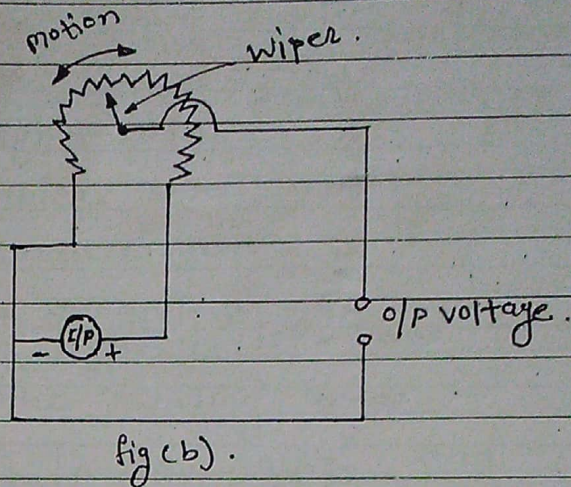 motion
wiper.
I/P
- +
o/p voltage.
fig (b).